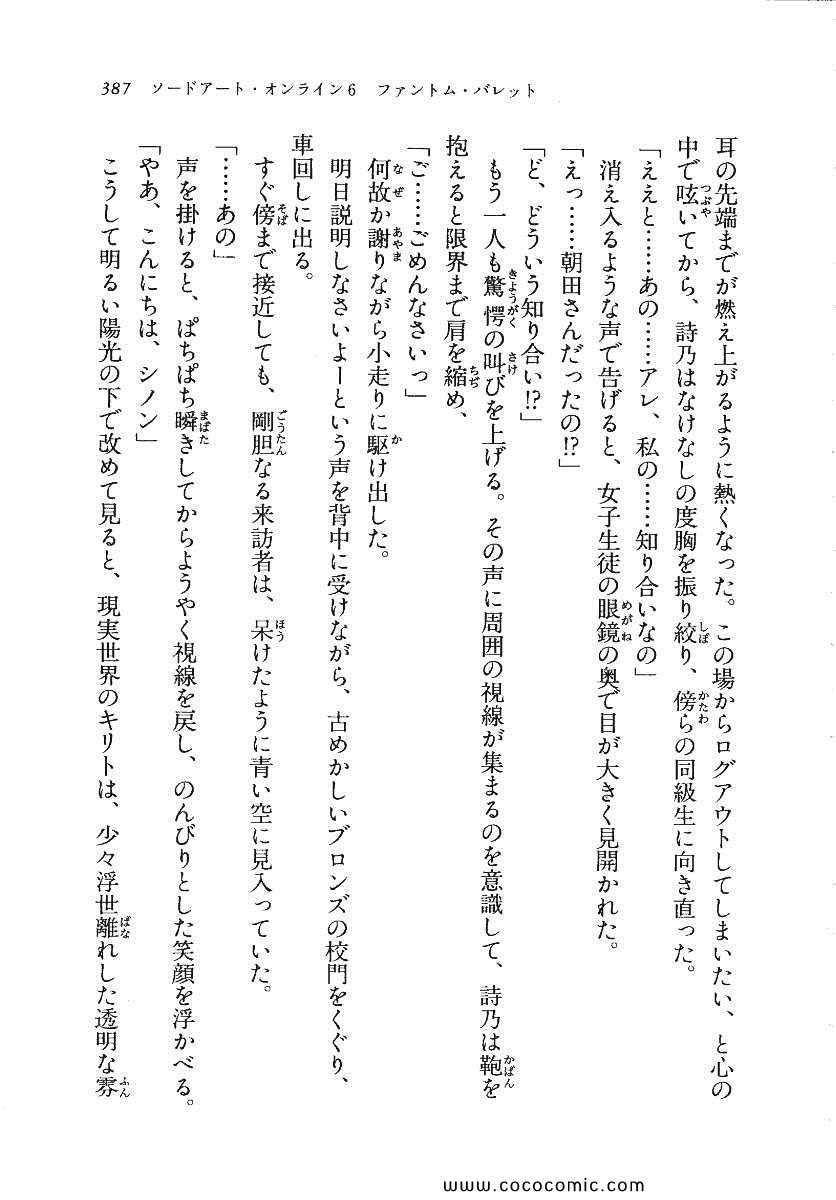 387　ソードアート・オンライン6　ファントム・バレット
耳の先端までが燃え上がるように熱くなった。この場からログアウトしてしまいたい、と心の
中で呟いてから、詩乃はなけなしの度胸を振り絞り、傍らの同級生に向き直った。
「ええと……あの……アレ、私の……知り合いなの」
消え入るような声で告げると、女子生徒の眼鏡の奥で目が大きく見開かれた。
「えっ……朝田さんだったの!?」
「ど、どういう知り合い!?」
もう一人も驚愕の叫びを上げる。その声に周囲の視線が集まるのを意識して、詩乃は鞄を
抱えると限界まで肩を縮め、
「ご……ごめんなさいっ」
何故か謝りながら小走りに駆け出した。
明日説明しなさいよーという声を背中に受けながら、古めかしいブロンズの校門をくぐり、
車回しに出る。
すぐ傍まで接近しても、剛胆なる来訪者は、呆けたように青い空に見入っていた。
「……あの」
声を掛けると、ぱちぱち瞬きしてからようやく視線を戻し、のんびりとした笑顔を浮かべる。
「やあ、こんにちは、シノン」
こうして明るい陽光の下で改めて見ると、現実世界のキリトは、少々浮世離れした透明な雰
www.cococomic.com